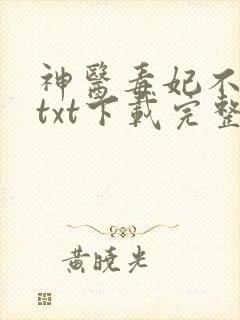 神醫毒妃不
txt下載完整
黃曉光